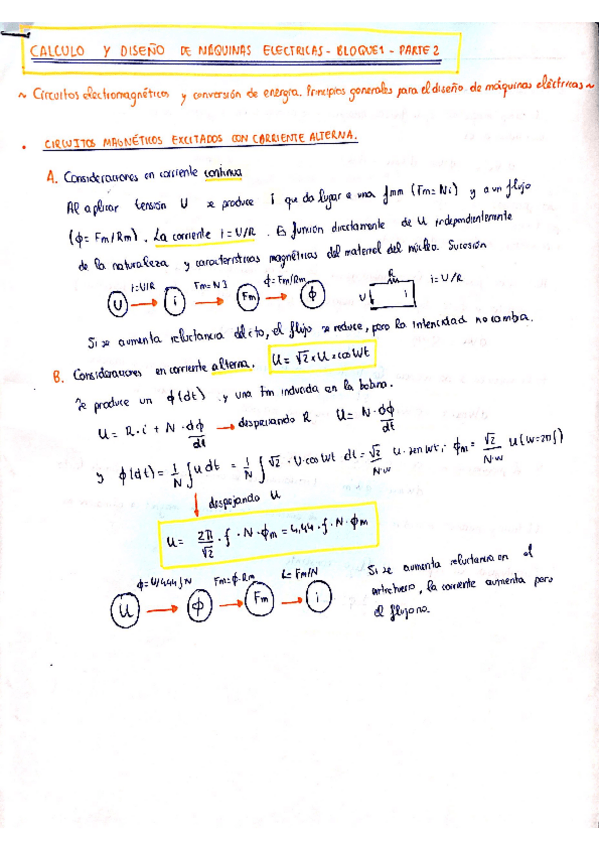 CALCULO Y DISEÑO DE MÁQUINAS ELECTRICAS - BLOQUE 1 - PARTE 2
~ Circuitos electromagnéticos y conversión de energía. Principios generales para el diseño de máquinas eléctricas ~
• CIRCUITOS MAGNÉTICOS EXCITADOS CON CARRIENTE ALTERNA.
A. Consideraciones en corriente continua
Al aplicar tensión U se produce i que da lugar a una fmm (Fm = Ni) y a un flujo
(ϕ = Fm/Rm). La corriente i = U/R. Es función directamente de U independientemente
de la naturaleza y características magnéticas del material del núcleo. Sucesión
U i=U/R i Fm=NJ Fm ϕ=Fm/Rm ϕ R U i i=U/R
Si se aumenta reluctancia del cto, el flujo se reduce, pero la intensidad no cambia.
B. Consideraciones en corriente alterna. U = √2 × U × cos Wt
Se produce un ϕ(dt) y una fm inducida en la bobina.
U = R·i + N · dϕ/dt → despreciando R U = N · dϕ/dt
y ϕ(dt) = 1/N ∫ u dt = 1/N ∫ √2 · U · cos Wt dt = √2/N·w U · sen wt; ϕm = √2/N·w U (w=2πf)
despejando U
U = 2π/√2 · f · N · ϕm = 4,44 · f · N · ϕm
U ϕ=U/4.44fN ϕ Fm=ϕ·Rm Fm i=Fm/N i
Si se aumenta reluctancia en el
entrehierro, la corriente aumenta pero
el flujo no.